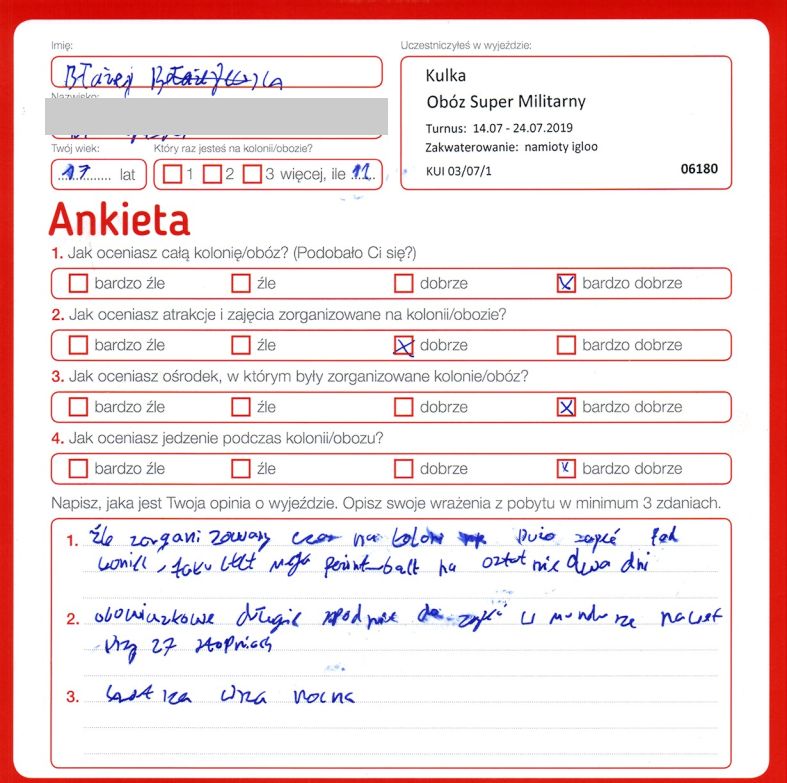 Imię:
Błażej
Uczestniczyłeś w wyjeździe:
Kulka
Obóz Super Militarny
Turnus: 14.07 - 24.07.2019
Zakwaterowanie: namioty igloo
KUI 03/07/1
06180
Nazwisko:
Twój wiek:
17 lat
Który raz jesteś na kolonii/obozie?
1 2 3 więcej, ile 11
Ankieta
1. Jak oceniasz całą kolonię/obóz? (Podobało Ci się?)
bardzo źle źle dobrze bardzo dobrze
2. Jak oceniasz atrakcje i zajęcia zorganizowane na kolonii/obozie?
bardzo źle źle dobrze bardzo dobrze
3. Jak oceniasz ośrodek, w którym były zorganizowane kolonie/obóz?
bardzo źle źle dobrze bardzo dobrze
4. Jak oceniasz jedzenie podczas kolonii/obozu?
bardzo źle źle dobrze bardzo dobrze
Napisz, jaka jest Twoja opinia o wyjeździe. Opisz swoje wrażenia z pobytu w minimum 3 zdaniach.
1. źle zorganizowany czas na
na dwa dni
2. obowiązkowe długie spodnie do zajęć w mundurze nawet
przy 27 stopniach
3. nocna